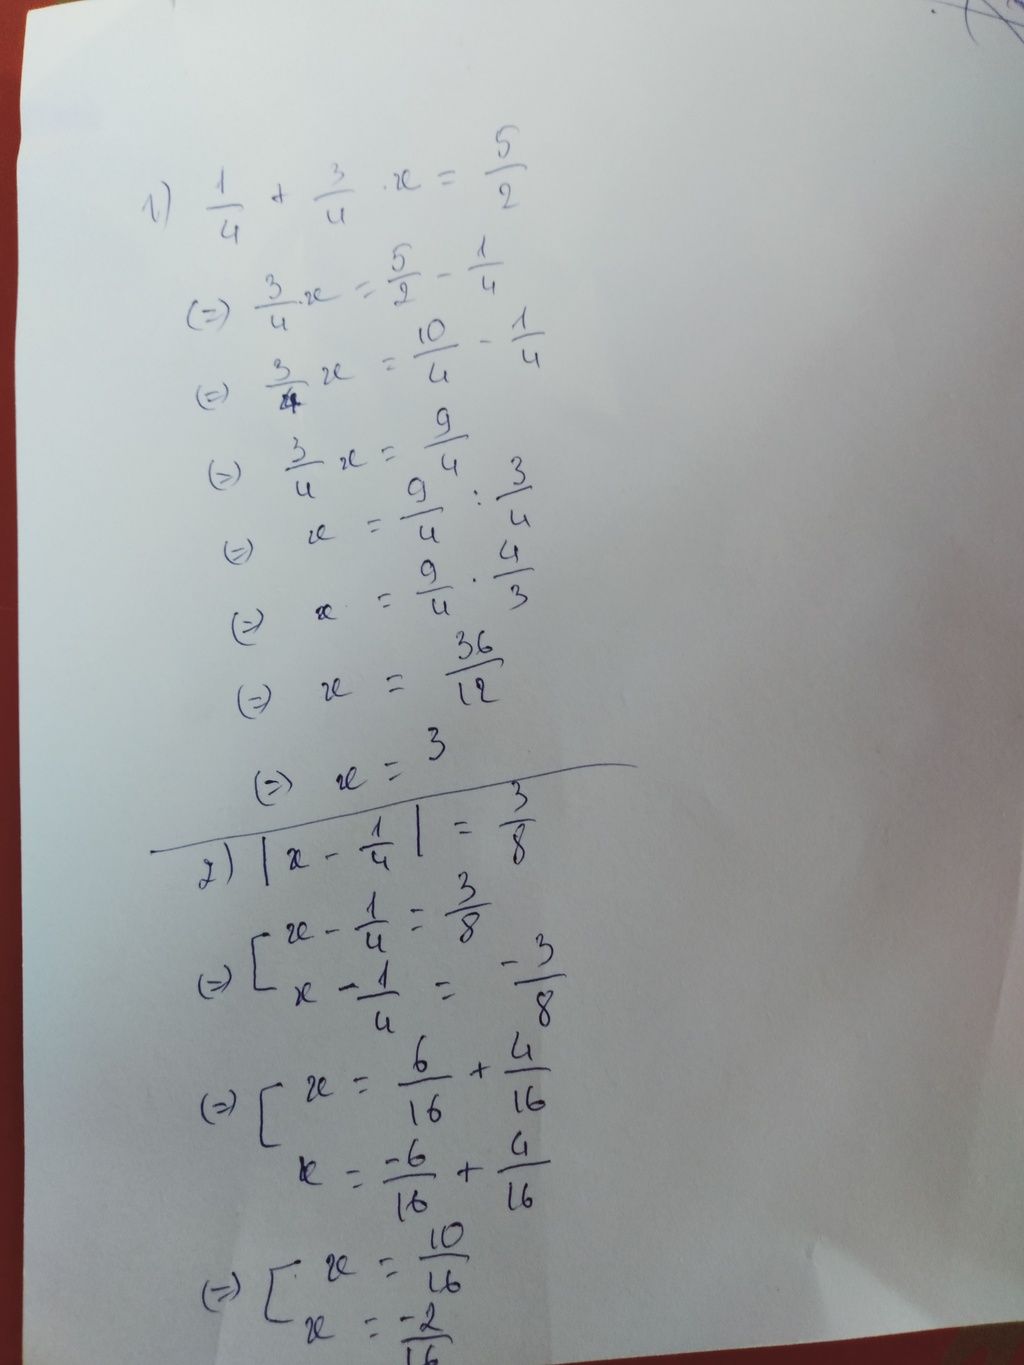 1) 1/4 + 3/4 . x = 5/2
(=) 3/4 . x = 5/2 - 1/4
(=) 3/4 x = 10/4 - 1/4
(=) 3/4 x = 9/4
(=) x = 9/4 : 3/4
(=) x = 9/4 . 4/3
(=) x = 36/12
(=) x = 3
2) |x - 1/4| = 3/8
(=) [ x - 1/4 = 3/8
x - 1/4 = -3/8
(=) [ x = 6/16 + 4/16
x = -6/16 + 4/16
(=) [ x = 10/16
x = -2/16